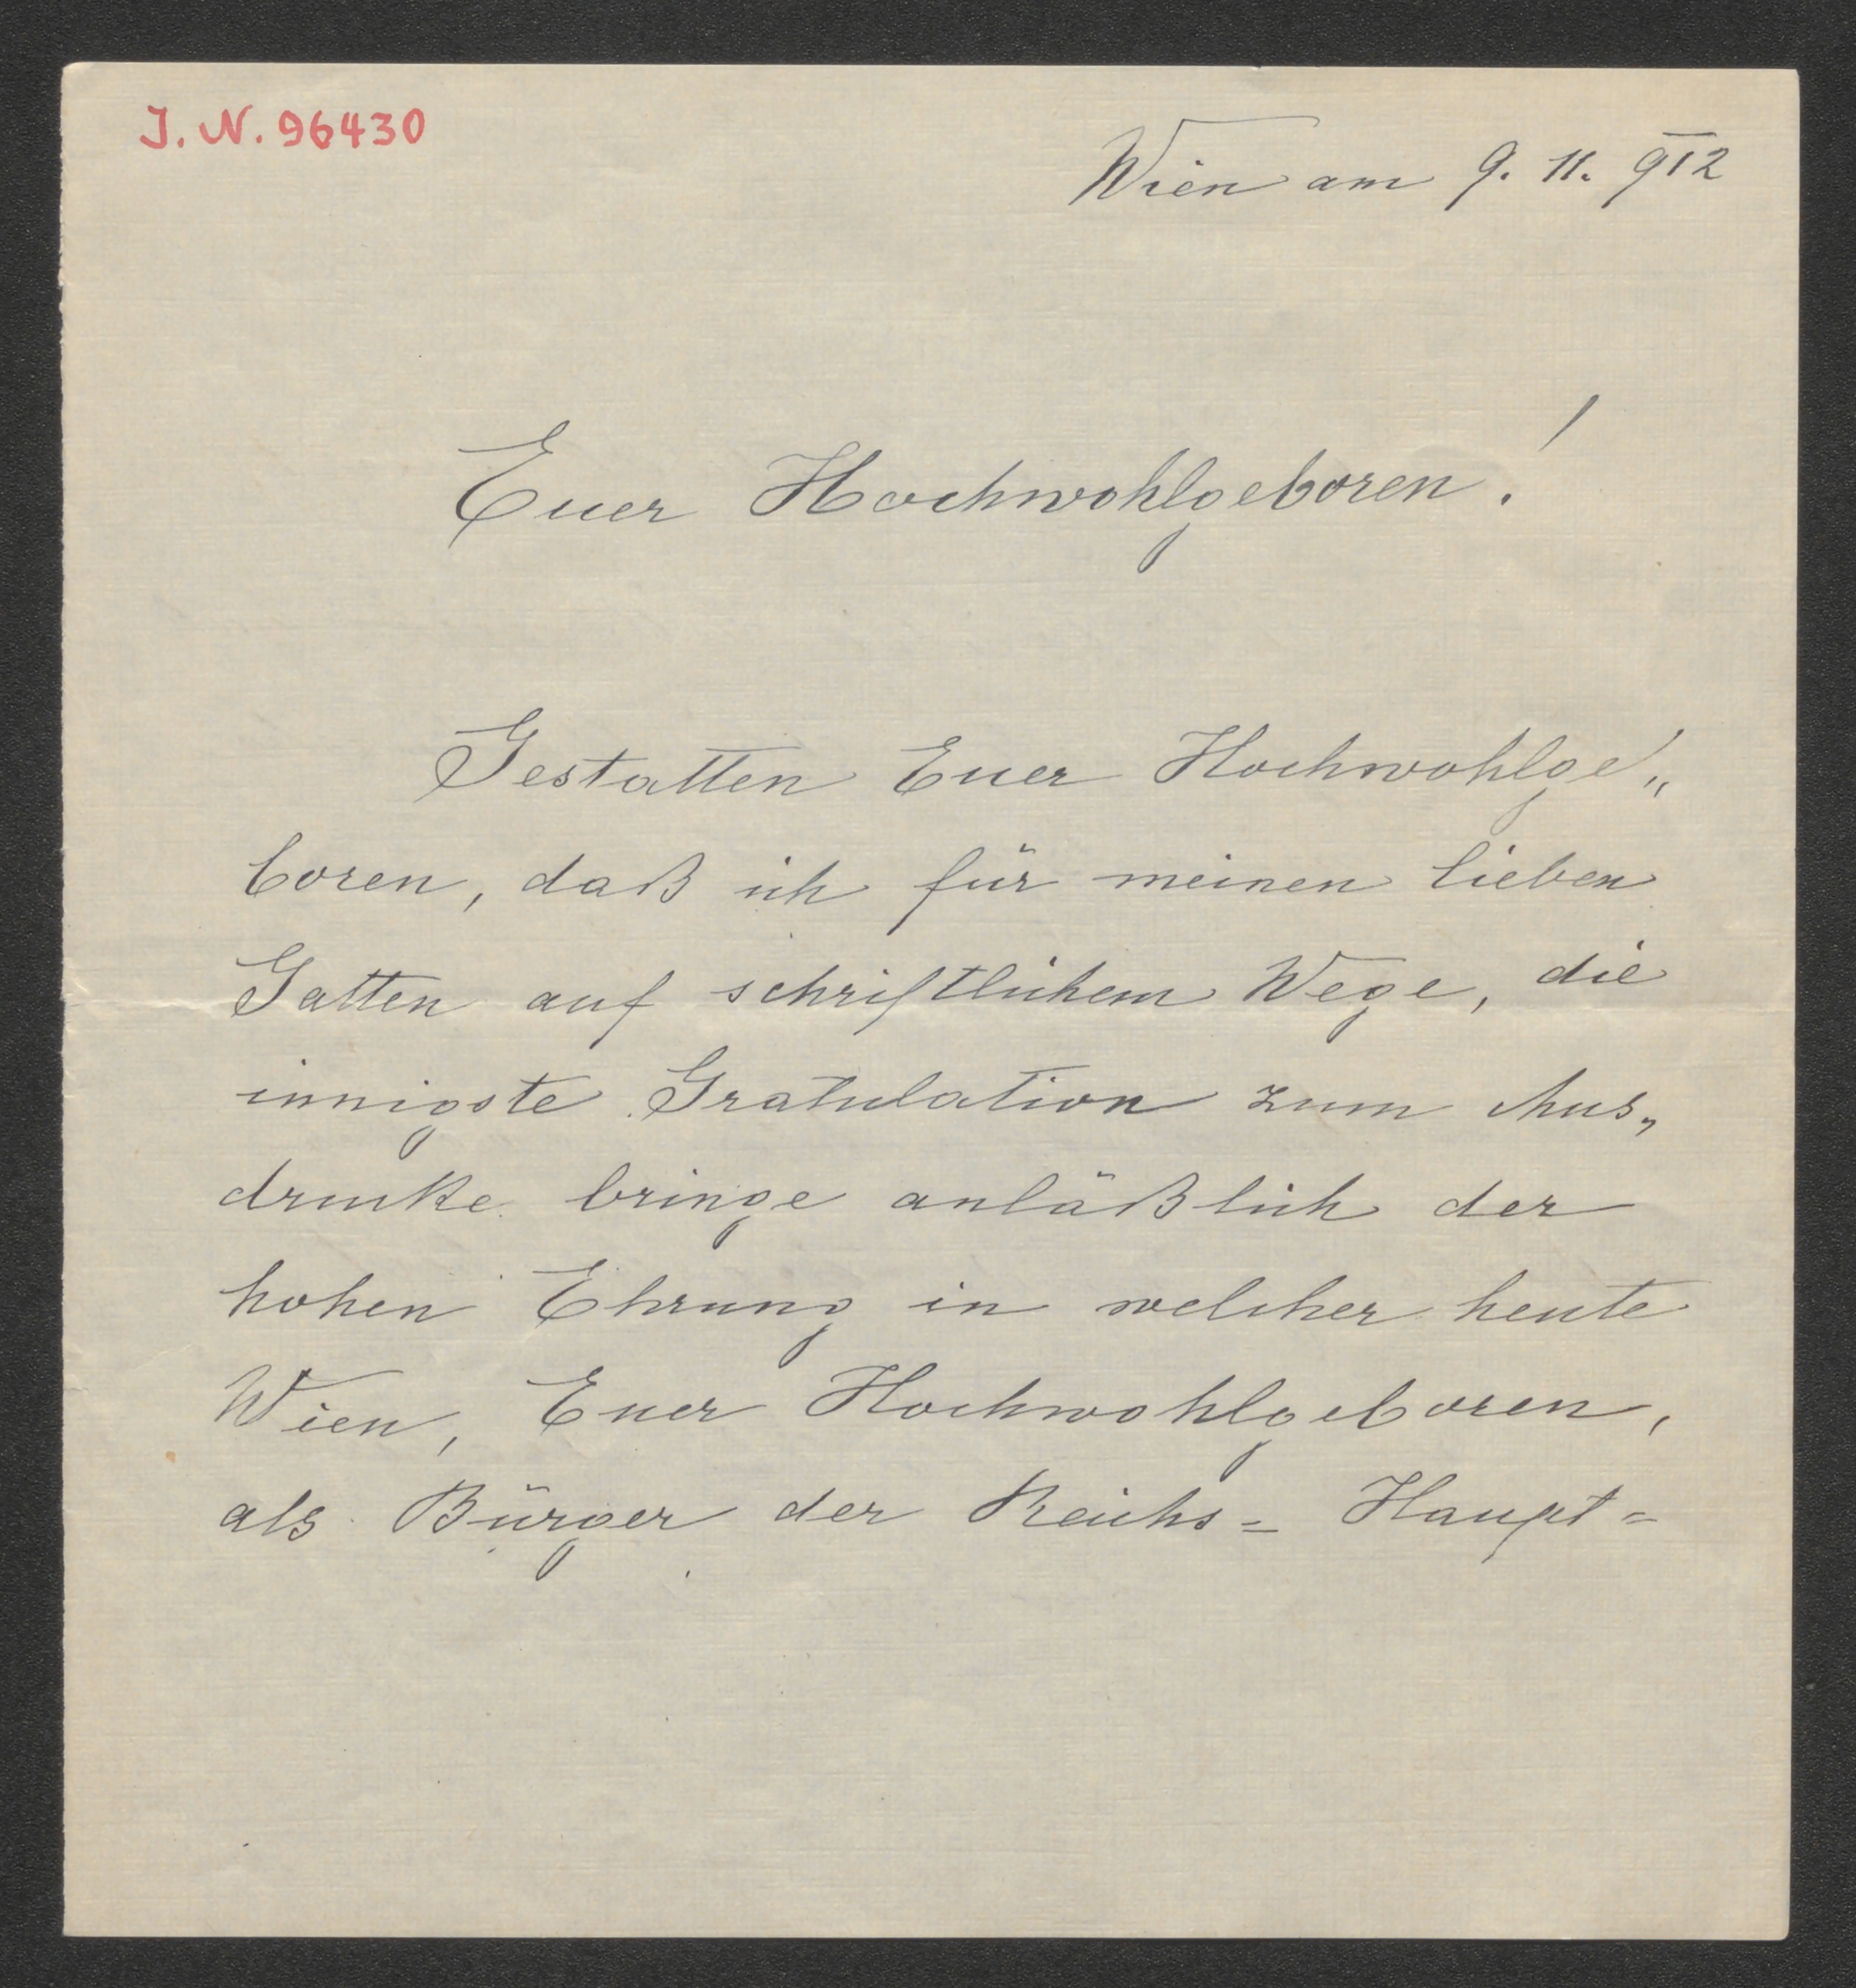 J. N. 96430
Wien am 9. 11. 912
Euer Hochwohlgeboren!
Gestatten Euer Hochwohlge„
boren, daß ich für meinen lieben
Gatten auf schriftlichem Wege, die
innigste Gratulation zum Aus„
drucke bringe anläßlich der
hohen Ehrung in welcher heute
Wien, Euer Hochwohlgeboren,
als Bürger der Reichs= Haupt=